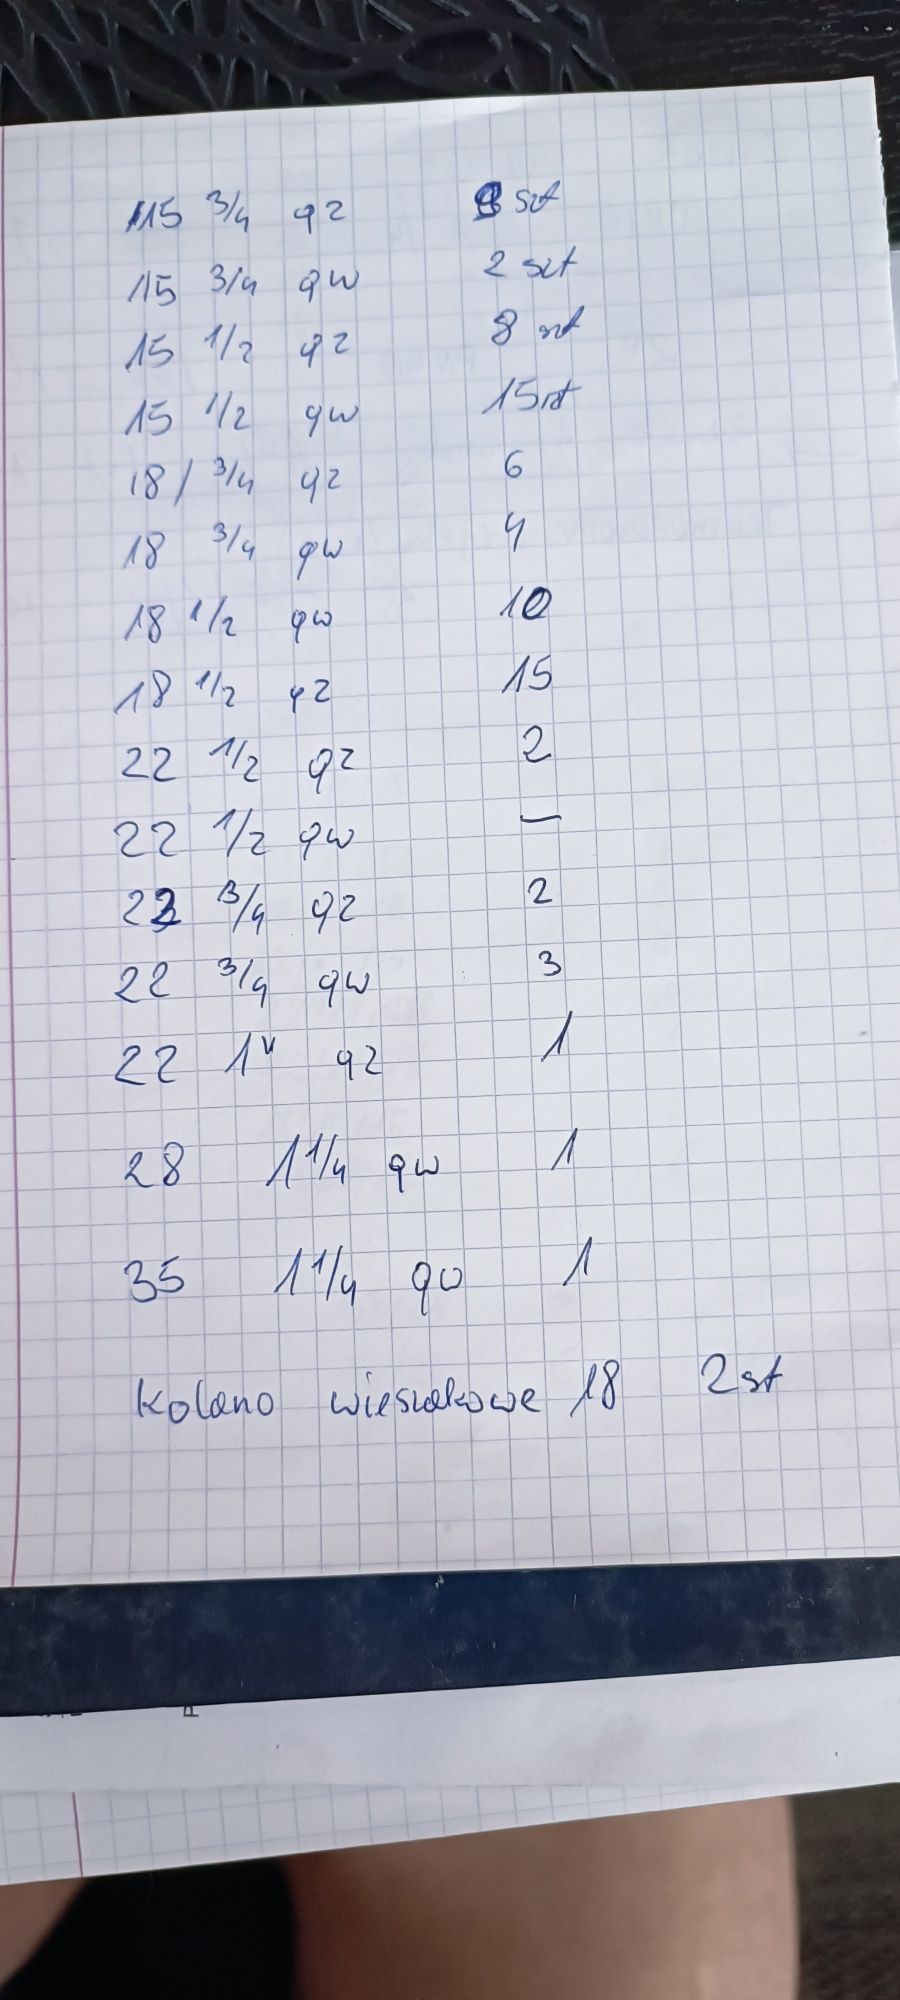 15 3/4 gz szt
15 3/4 gw 2 szt
15 1/2 gz 8 szt
15 1/2 gw 15 szt
18 / 3/4 gz 6
18 3/4 gw 4
18 1/2 gw 10
18 1/2 gz 15
22 1/2 gz 2
22 1/2 gw —
22 3/4 gz 2
22 3/4 gw 3
22 1" gz 1
28 1 1/4 gw 1
35 1 1/4 gw 1
Kolano wieszakowe 18 2 szt